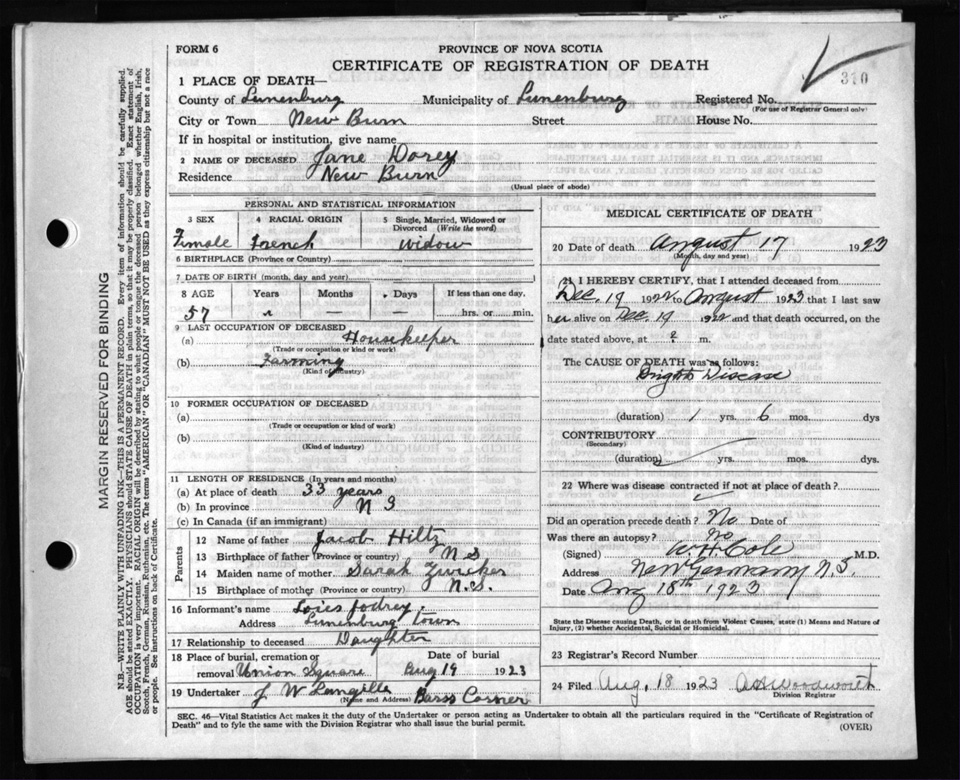 FORM 6
PROVINCE OF NOVA SCOTIA
CERTIFICATE OF REGISTRATION OF DEATH
310
1 PLACE OF DEATH—
County of Lunenburg Municipality of Lunenburg Registered No.
(For use of Registrar General only)
City or Town New Burn Street House No.
If in hospital or institution, give name
2 NAME OF DECEASED Jane Dorey
Residence New Burn
(Usual place of abode)
PERSONAL AND STATISTICAL INFORMATION
3 SEX 4 RACIAL ORIGIN 5 Single, Married, Widowed or Divorced (Write the word)
Female French widow
6 BIRTHPLACE (Province or Country)
7 DATE OF BIRTH (month, day and year)
8 AGE Years Months Days If less than one day,
57 hrs. or min.
9 LAST OCCUPATION OF DECEASED
(a) Housekeeper
(Trade or occupation or kind or work)
(b) Farming
(Kind of industry)
10 FORMER OCCUPATION OF DECEASED
(a)
(Trade or occupation or kind of work)
(b)
(Kind of industry)
11 LENGTH OF RESIDENCE (In years and months)
(a) At place of death 33 years
(b) In province N S
(c) In Canada (if an immigrant)
Parents
12 Name of father Jacob Hiltz
13 Birthplace of father (Province or country) N S
14 Maiden name of mother Sarah Zwicker
15 Birthplace of mother (Province or country) N.S.
16 Informant's name Jodrey
Address Lunenburg Town
17 Relationship to deceased Daughter
18 Place of burial, cremation or removal Union Square Date of burial Aug 19 1923
19 Undertaker J W Langille Barss Corner
(Name and Address)
MEDICAL CERTIFICATE OF DEATH
20 Date of death August 17 1923
(Month, day and year)
21 I HEREBY CERTIFY, that I attended deceased from
Dec. 19 1922 to August 1923 that I last saw
her alive on Dec. 19 1922 and that death occurred, on the
date stated above, at ? m.
The CAUSE OF DEATH was as follows:
Brights Disease
(duration) 1 yrs. 6 mos. dys
CONTRIBUTORY
(Secondary)
(duration) yrs. mos. dys.
22 Where was disease contracted if not at place of death?
Did an operation precede death? No Date of
Was there an autopsy? no
(Signed) W.H. Cole M.D.
Address New Germany N.S.
Date Aug 18th 1923
State the Disease causing Death, or in death from Violent Causes, state (1) Means and Nature of Injury, (2) whether Accidental, Suicidal or Homicidal.
23 Registrar's Record Number
24 Filed Aug. 18 1923 Woodworth
Division Registrar
SEC. 46—Vital Statistics Act makes it the duty of the Undertaker or person acting as Undertaker to obtain all the particulars required in the "Certificate of Registration of
Death" and to fyle the same with the Division Registrar who shall issue the burial permit.
(OVER)
MARGIN RESERVED FOR BINDING
N.B.—WRITE PLAINLY WITH UNFADING INK—THIS IS A PERMANENT RECORD. Every item of information should be carefully supplied.
AGE should be stated EXACTLY. PHYSICIANS should STATE CAUSE OF DEATH in plain terms, so that it may be properly classified. Exact statement of
OCCUPATION is very important. RACIAL ORIGIN will be described by stating to what people or tongue the deceased person belonged whether English, Irish,
Scotch, French, German, Russian, Ruthenian, etc. The terms "AMERICAN" OR "CANADIAN" MUST NOT BE USED as they express citizenship but not a race
or people. See instructions on back of Certificate.